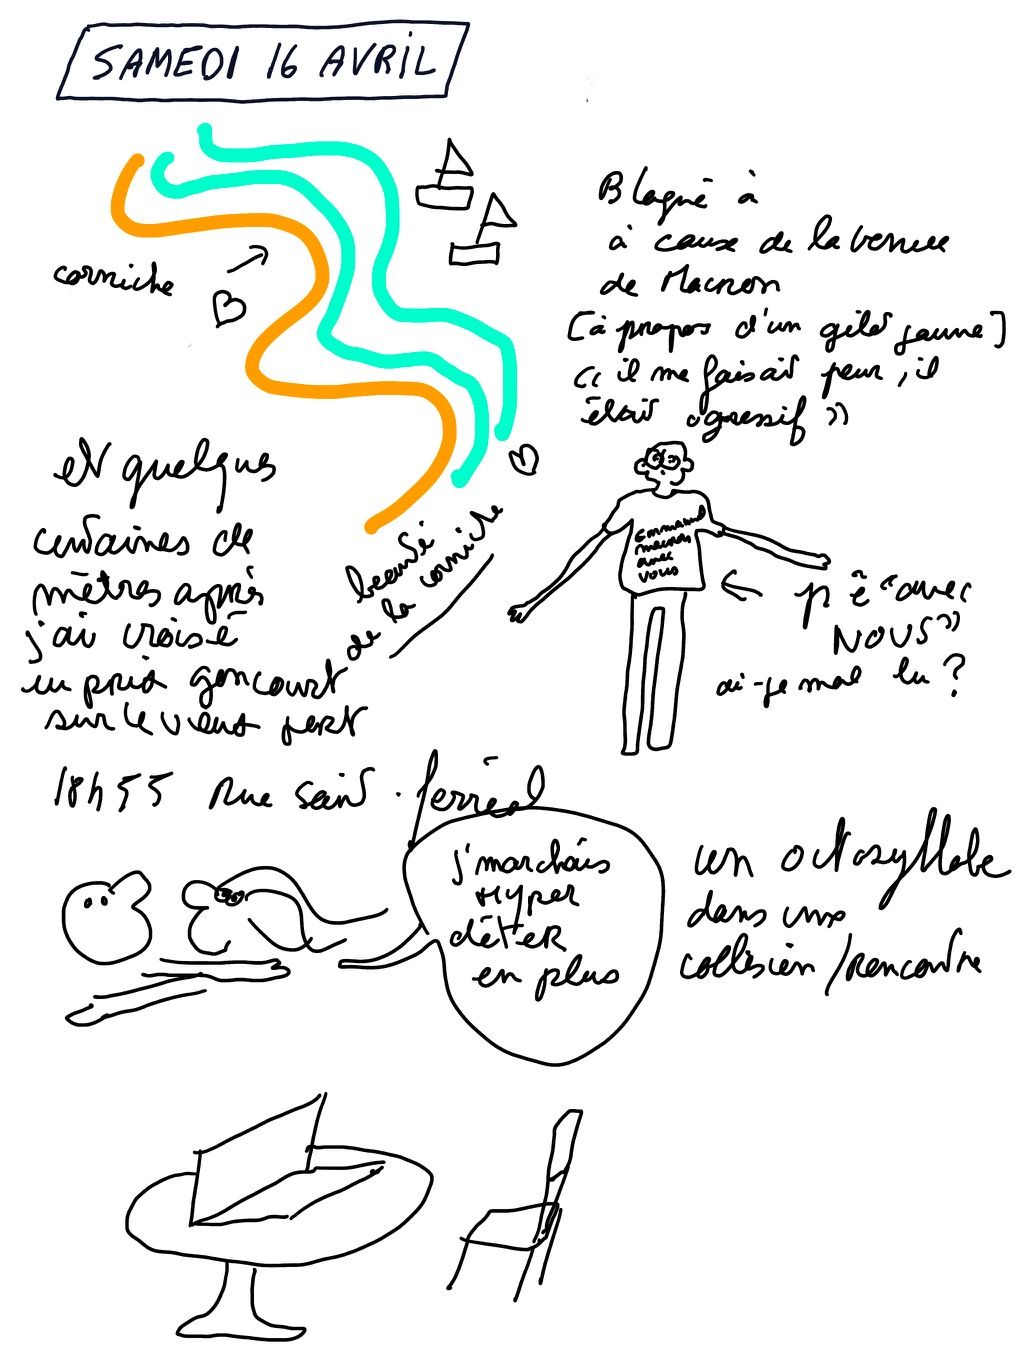 SAMEDI 16 AVRIL
corniche
Blaguē à
à cause de la venue
de Macron
[à propos d'un gilet jaune]
« il me faisait peur, il
était agressif »
Emmanuel
macron
avec
vous
p ê "avec
NOUS"
ai-je mal lu ?
beauté
de la corniche
et quelques
centaines de
mètres après
j'ai croisé
un prix goncourt
sur le vieux port
18h55 Rue Saint-ferréol
j'marchais
Hyper
déTER
en plus
un octosyllabe
dans une
collision/rencontre